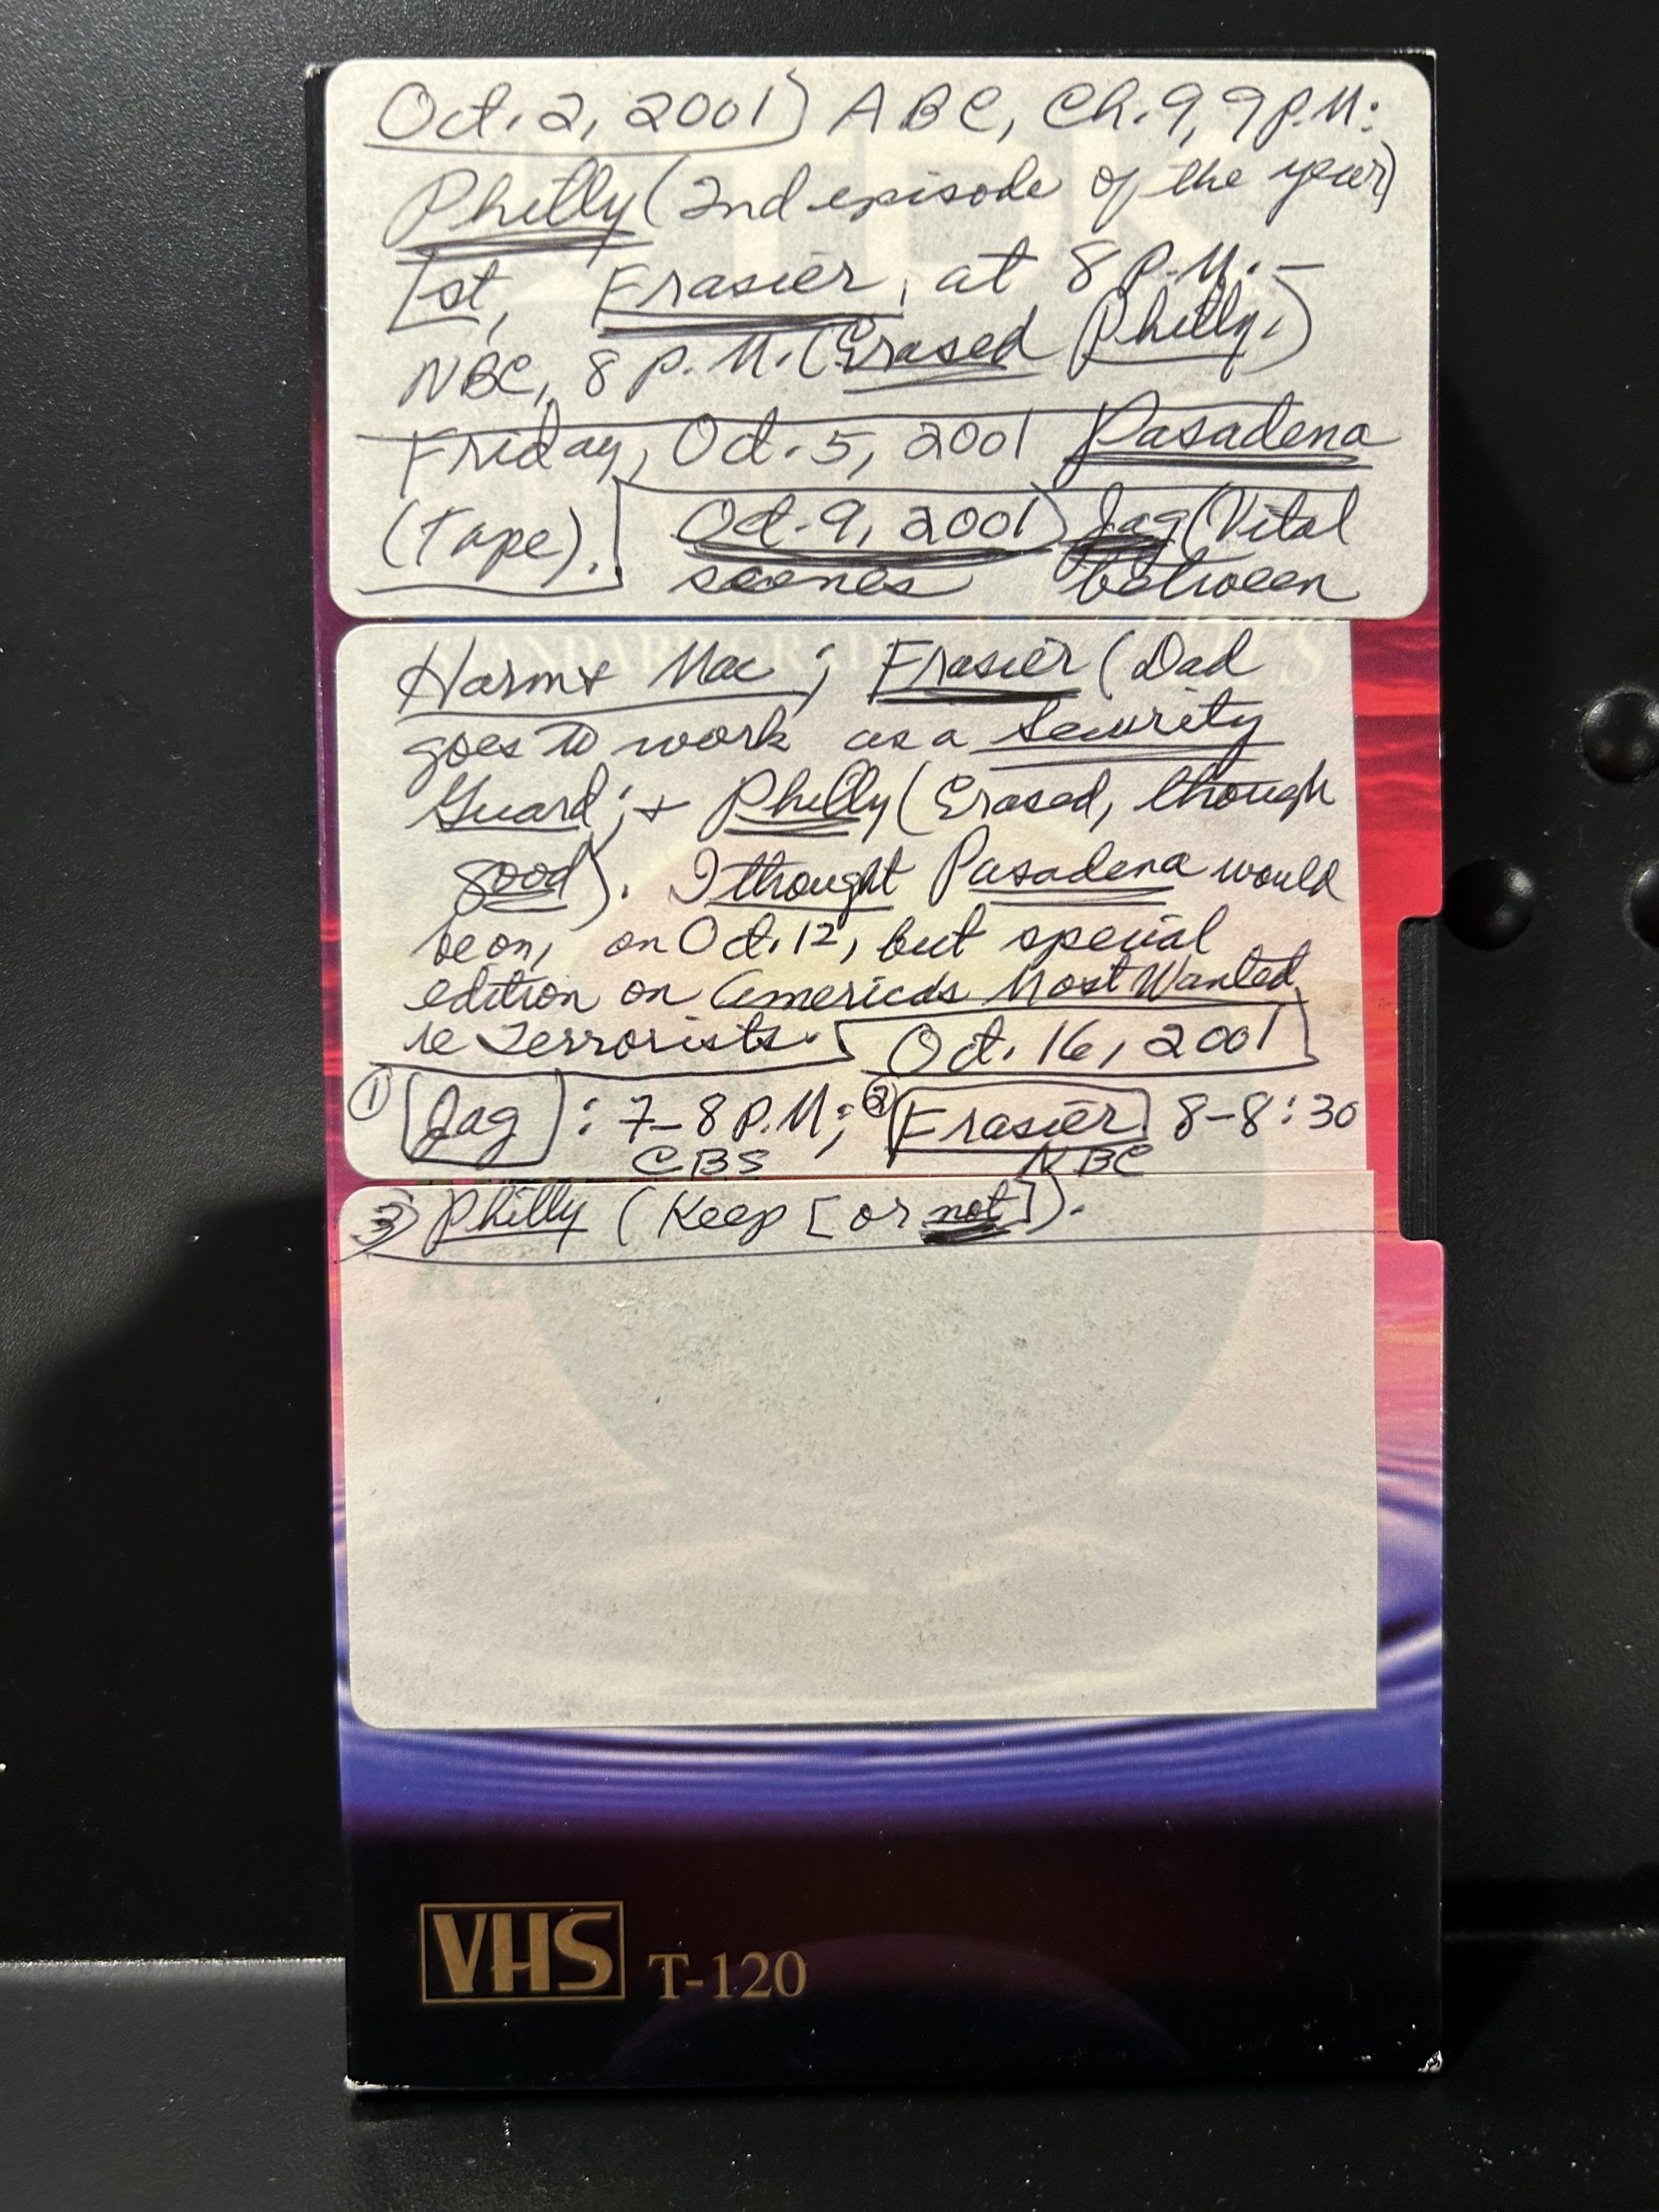 Oct. 2, 2001) ABC, Ch. 9, 9 P.M:
Philly (2nd episode of the year)
1st, Frasier, at 8 P.M. –
NBC, 8 P.M. (Erased Philly.)
Friday, Oct. 5, 2001 Pasadena
(Tape). Oct. 9, 2001) Jag (Vital
scenes between
Harm & Mac; Frasier (Dad
goes to work as a Security
Guard; & Philly (Erased, though
good). I thought Pasadena would
be on, on Oct. 12, but special
edition on Americas Most Wanted
re Terrorists. Oct. 16, 2001
① [Jag]: 7–8 P.M; ② [Frasier] 8–8:30
CBS NBC
③ Philly (Keep [or not]).
VHS T-120